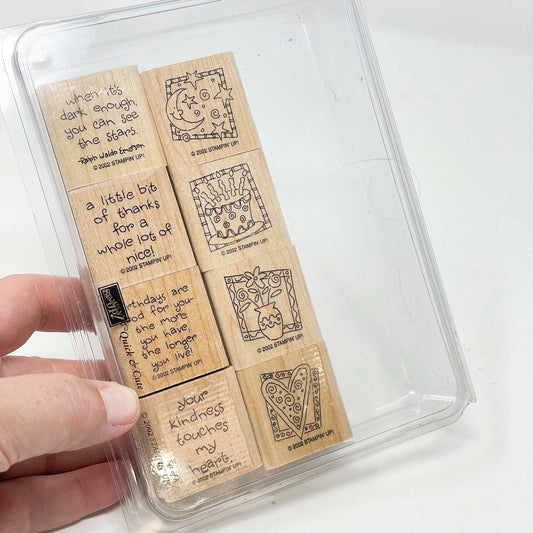 when it's
dark enough,
you can see
the stars.
-Ralph Waldo Emerson
© 2002 STAMPIN' UP!
© 2002 STAMPIN' UP!
a little bit
of thanks
for a
whole lot of
nice!
© 2002 STAMPIN' UP!
© 2002 STAMPIN' UP!
rthdays are
od for you-
the more
you have,
the longer
you live!
© 2002 STAMPIN' UP!
Quick & Cute
© 2002 STAMPIN' UP!
your
kindness
touches
my
heart.
© 2002 STAMPIN' UP!
© 2002 STAMPIN' UP!
© 2002 STAMP